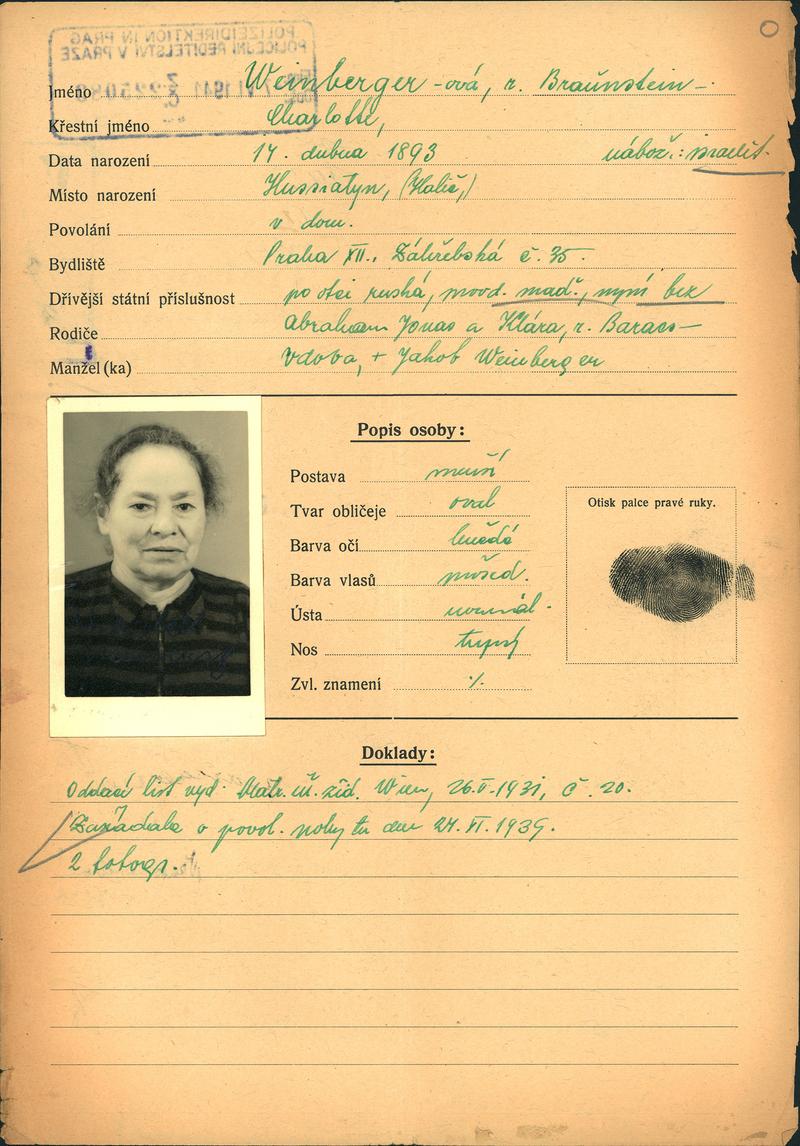 POLIZEIDIREKTION IN PRAG
POLICEJNÍ ŘEDITELSTVÍ V PRAZE
1941
Jméno Weinberger-ová, r. Braunstein-
Křestní jméno Charlotte,
Data narození 14. dubna 1893 nábož.: israelit.
Místo narození Hussiatyn, (Halič,)
Povolání v dom.
Bydliště Praha XII., Záhřebská č. 35.
Dřívější státní příslušnost po otci ruská, maď., nyní bez
Rodiče Abraham Jonas a Klára, r.
Manžel (ka) vdova, + Jakob Weinberger
Popis osoby:
Postava menší
Tvar obličeje oval
Otisk palce pravé ruky.
Barva očí hnědé
Barva vlasů prošed.
Ústa normál.
Nos tupý
Zvl. znamení ./.
Doklady:
Oddací list vyd. Matr. úř. žid. Wien, č. 20.
Zažádala o povol. pobytu dne 24. VI. 1939.
2 fotogr.